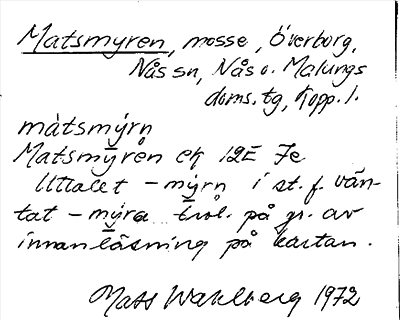 Matsmyren, mosse, Överborg,
Nås sn, Nås o. Malungs
doms. tg, Kopp. l.
màtsmýrn
Matsmyren ek 12E 7e
Uttalet – myrn i st. f. vän-
tat – myra trol. på gr. av
innanläsning på kartan.
Mats Wahlberg 1972